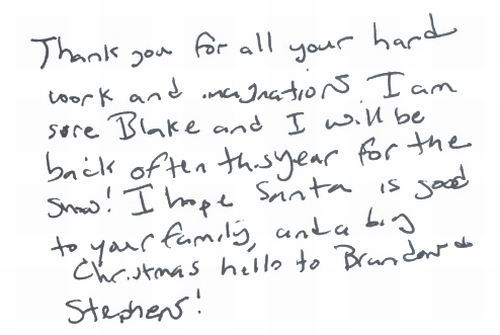 Thank you for all your hard
work and imagnations. I am
sure Blake and I will be
back often this year for the
snow! I hope Santa is good
to your family, and a big
Christmas hello to Brandon +
Stephens!